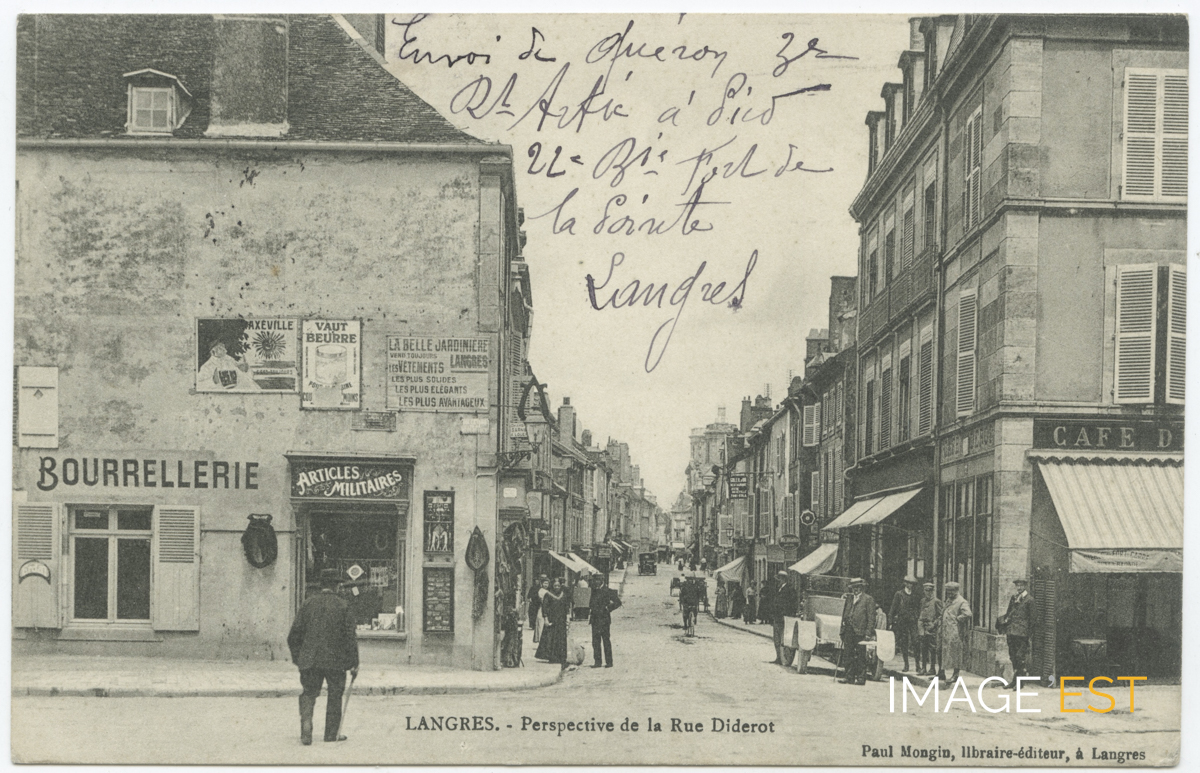 Envoi de Quéron 2e
Rt Artie à Pied
22e Bie Fort de
la Pointe
Langres
AXEVILLE
VAUT
BEURRE
LA BELLE JARDINIÈRE
VEND TOUJOURS
LES VÊTEMENTS LANGRES
LES PLUS SOLIDES
LES PLUS ÉLÉGANTS
LES PLUS AVANTAGEUX
BOURRELLERIE
ARTICLES
MILITAIRES
CAFE D
LANGRES. - Perspective de la Rue Diderot
IMAGE EST
Paul Mongin, libraire-éditeur, à Langres